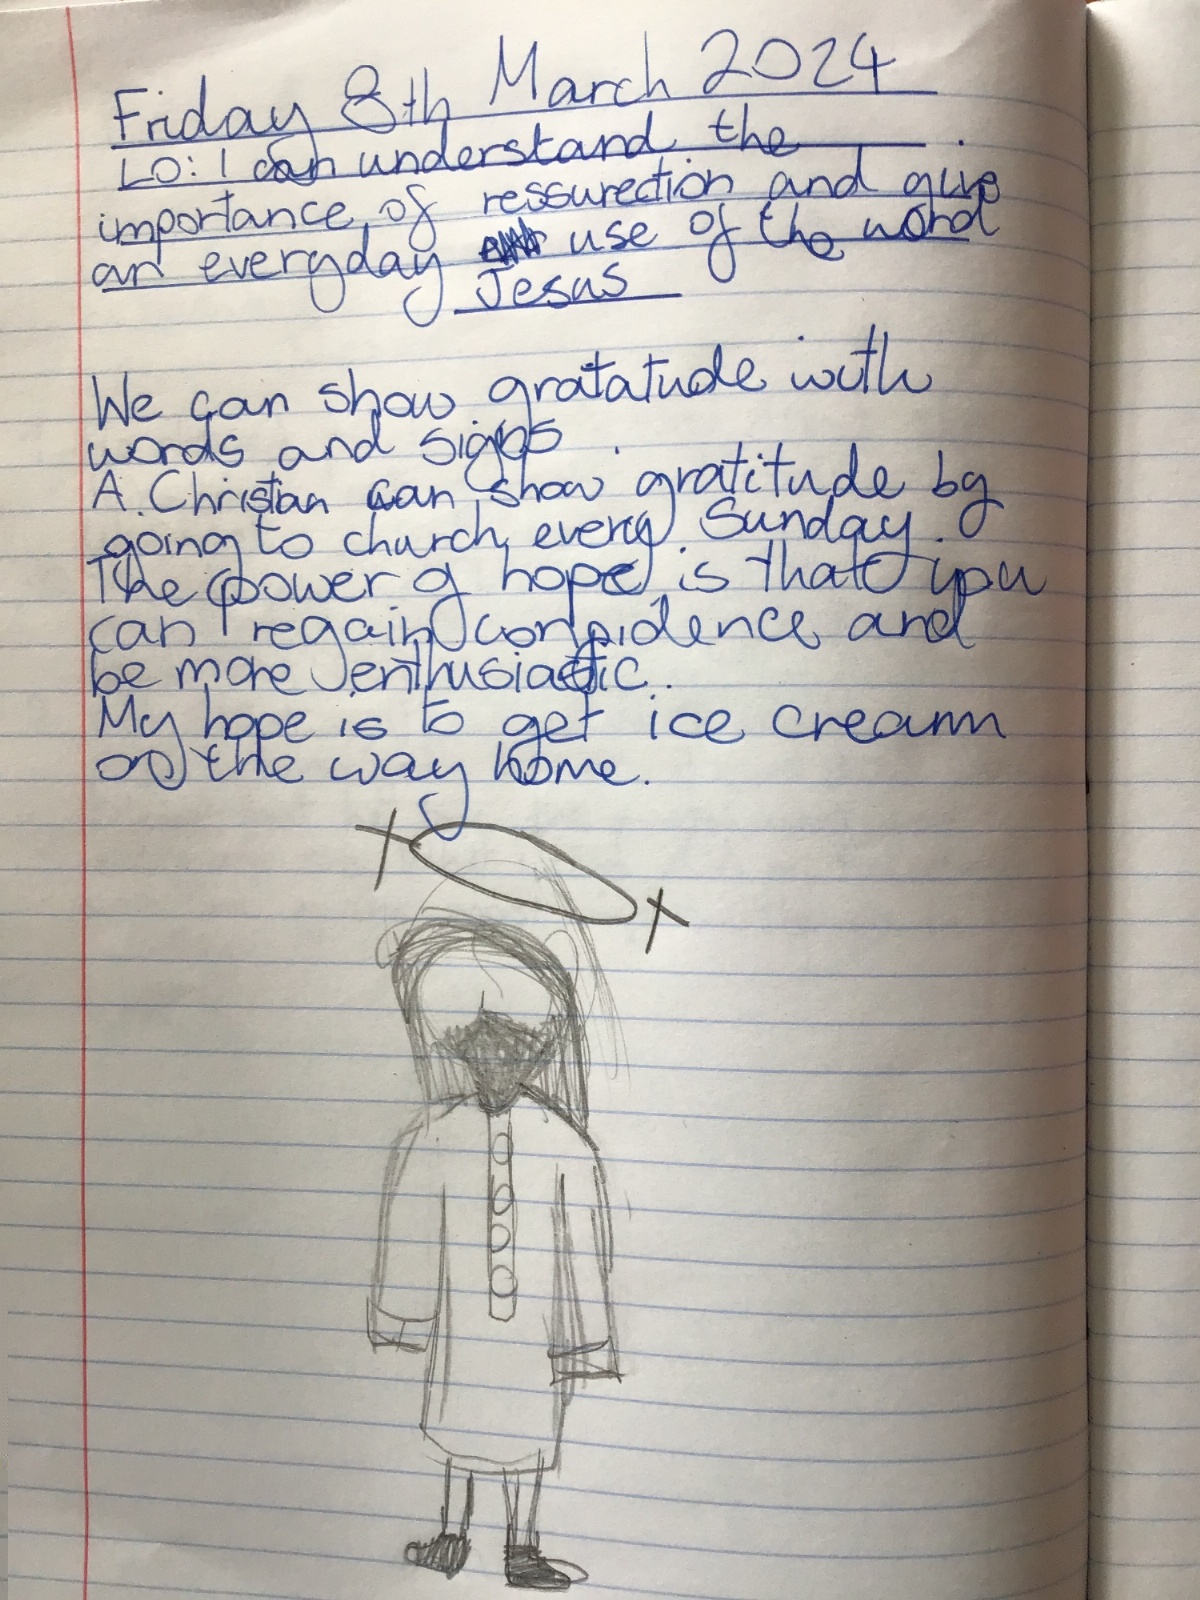 Friday 8th March 2024
LO: I can understand the
importance of ressurection and give
an everyday use of the word
Jesus
We can show gratatude with
words and signs
A Christian can show gratitude by
going to church every Sunday.
The power of hope is that you
can regain confidence and
be more enthusiastic.
My hope is to get ice cream
on the way home.